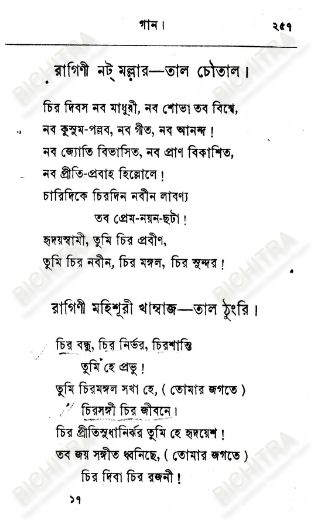 গান।
২৫৭
রাগিণী নট্ মল্লার—তাল চৌতাল।
চির দিবস নব মাধুরী, নব শোভা তব বিশ্বে,
নব কুসুম-পল্লব, নব গীত, নব আনন্দ!
নব জ্যোতি বিভাসিত, নব প্রাণ বিকাশিত,
নব প্রীতি-প্রবাহ হিল্লোলে!
চারিদিকে চিরদিন নবীন লাবণ্য
তব প্রেম-নয়ন-ছটা!
হৃদয়স্বামী, তুমি চির প্রবীণ,
তুমি চির নবীন, চির মঙ্গল, চির সুন্দর!
রাগিণী মহিশূরী খাম্বাজ—তাল ঠুংরি।
চির বন্ধু, চির নির্ভর, চিরশান্তি
তুমি হে প্রভু!
তুমি চিরমঙ্গল সখা হে, (তোমার জগতে)
চিরসঙ্গী চির জীবনে।
চির প্রীতিসুধানির্ঝর তুমি হে হৃদয়েশ!
তব জয় সঙ্গীত ধ্বনিছে, (তোমার জগতে)
চির দিবা চির রজনী!
১৭
BICHITRA
BICHITRA
BICHITRA
BICHITRA
BICHITRA
BICHITRA